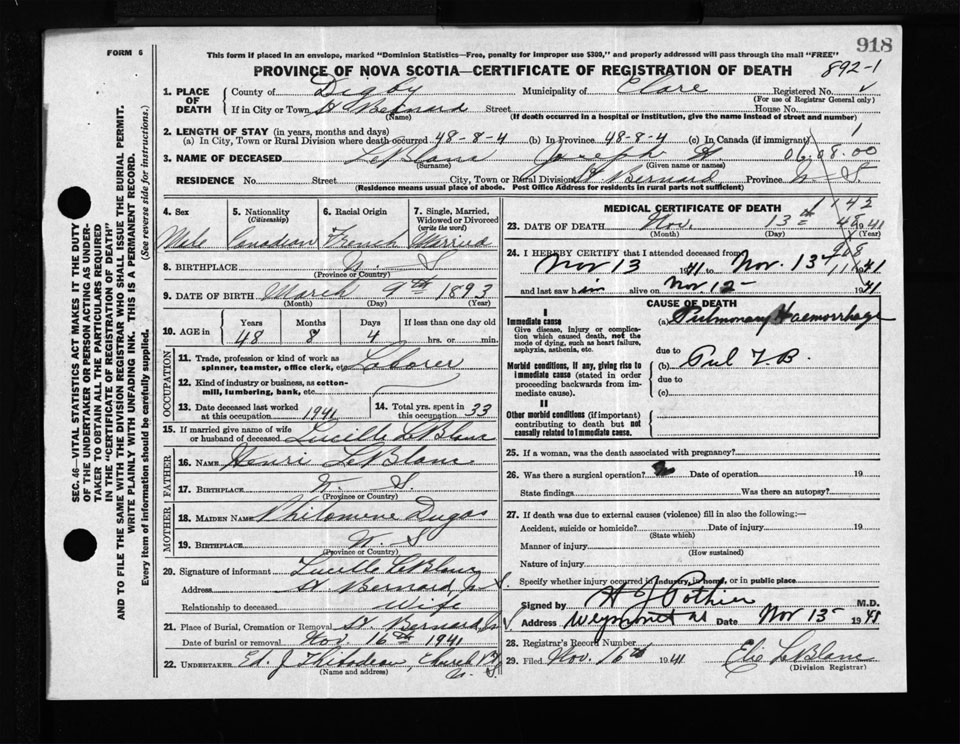 918
FORM 6
This form if placed in an envelope, marked "Dominion Statistics—Free, penalty for improper use $300," and properly addressed will pass through the mail "FREE"
PROVINCE OF NOVA SCOTIA—CERTIFICATE OF REGISTRATION OF DEATH 892-1
SEC. 46—VITAL STATISTICS ACT MAKES IT THE DUTY
OF THE UNDERTAKER OR PERSON ACTING AS UNDER-
TAKER TO OBTAIN ALL THE PARTICULARS REQUIRED
IN THE "CERTIFICATE OF REGISTRATION OF DEATH"
AND TO FILE THE SAME WITH THE DIVISION REGISTRAR WHO SHALL ISSUE THE BURIAL PERMIT.
WRITE PLAINLY WITH UNFADING INK. THIS IS A PERMANENT RECORD.
Every item of information should be carefully supplied. (See reverse side for instructions.)
1. PLACE OF DEATH County of Digby Municipality of Clare Registered No.
(For use of Registrar General only)
If in City or Town St Bernard Street House No.
(Name) (If death occurred in a hospital or institution, give the name instead of street and number)
2. LENGTH OF STAY (in years, months and days)
(a) In City, Town or Rural Division where death occurred 48-8-4 (b) In Province 48-8-4 (c) In Canada (if immigrant)
3. NAME OF DECEASED LeBlanc Joseph 06.08.00
(Surname) (Given name or names)
RESIDENCE No. Street City, Town or Rural Division St Bernard Province N. S.
(Residence means usual place of abode. Post Office Address for residents in rural parts not sufficient)
4. Sex 5. Nationality (Citizenship) 6. Racial Origin 7. Single, Married, Widowed or Divorced (write the word)
Male Canadian French Married
8. BIRTHPLACE N. S
(Province or Country)
9. DATE OF BIRTH March 9th 1893
(Month) (Day) (Year)
10. AGE in Years Months Days If less than one day old
48 8 4 hrs. or min.
OCCUPATION
11. Trade, profession or kind of work as
spinner, teamster, office clerk, etc Laborer
12. Kind of industry or business, as cotton-
mill, lumbering, bank, etc
13. Date deceased last worked
at this occupation 1941
14. Total yrs. spent in
this occupation 33
15. If married give name of wife
or husband of deceased Lucille LeBlanc
FATHER
16. NAME Henri LeBlanc
17. BIRTHPLACE N. S.
(Province or Country)
MOTHER
18. MAIDEN NAME Philomene Dugas
19. BIRTHPLACE N. S
(Province or Country)
20. Signature of informant Lucille LeBlanc
Address St Bernard, N S.
Relationship to deceased Wife
21. Place of Burial, Cremation or Removal St. Bernard
Date of burial or removal Nov 16th 1941
22. UNDERTAKER Ed. J Thibodeau Church Pt
(Name and address) N. S
MEDICAL CERTIFICATE OF DEATH
23. DATE OF DEATH Nov. 13th 1941
(Month) (Day) (Year)
24. I HEREBY CERTIFY that I attended deceased from
Nov 13 1941 to Nov. 13 1941
and last saw him alive on Nov 12 1941
CAUSE OF DEATH
I
Immediate cause
Give disease, injury or complica-
tion which caused death, not the
mode of dying, such as heart failure,
asphyxia, asthenia, etc.
(a) Pulmonary Haemorrhage
due to
Morbid conditions, if any, giving rise to
immediate cause (stated in order
proceeding backwards from im-
mediate cause).
(b) Pul T B.
due to
(c)
II
Other morbid conditions (if important)
contributing to death but not
causally related to immediate cause.
25. If a woman, was the death associated with pregnancy?
26. Was there a surgical operation? Date of operation 19
State findings Was there an autopsy?
27. If death was due to external causes (violence) fill in also the following:—
Accident, suicide or homicide? Date of injury 19
(State which)
Manner of injury
(How sustained)
Nature of injury
Specify whether injury occurred in industry, in home, or in public place
Signed by Pothier M.D.
Address Weymouth NS Date Nov 13 1941
28. Registrar's Record Number
29. Filed Nov. 16th 1941 Elie LeBlanc
(Division Registrar)